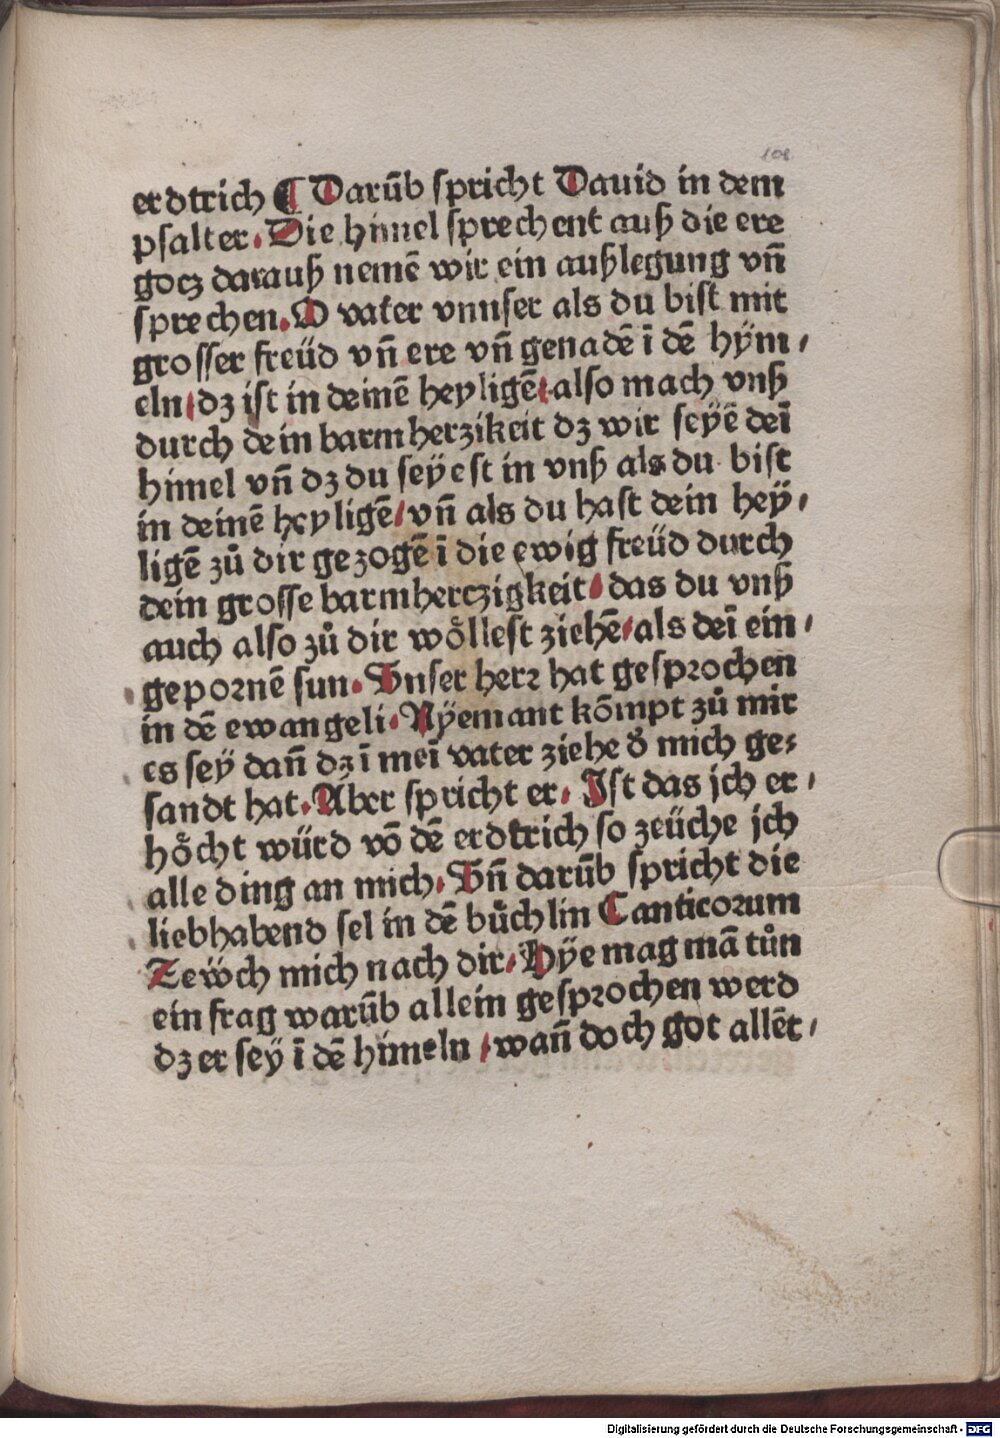 108
erdtrich ¶ Darūb spricht Dauid in dem
psalter. Die himel sprechent auß die ere
gocz darauß nemē wir ein außlegung vn̄
sprechen. O vater vnnser als du bist mit
grosser freüd vn̄ ere vn̄ genadē ī dē hÿm-
eln / dz ist in deinē heyligē / also mach vnß
durch dein barmherzikeit dz wir seÿē deī
himel vn̄ dz du seÿest in vnß als du bist
in deinē heyligē / vn̄ als du hast dein heÿ-
ligē zů dir gezogē ī die ewig freüd durch
dein grosse barmherczigkeit / das du vnß
auch also zů dir wöllest ziehē / als deī ein-
gepornē sun. Vnser herr hat gesprochen
in dē ewangeli. Nÿemant kōmpt zů mir
es seÿ dan̄ dz ī meī vater ziehe d̓ mich ge-
sandt hat. Aber spricht er. Ist das jch er-
höcht würd vō dē erdtrich so zeüche jch
alle ding an mich. Vn̄ darūb spricht die
liebhabend sel in dē bůchlin Canticorum
Zewch mich nach dir. Hÿe mag mā tůn
ein frag warūb allein gesprochen werd
dz er seÿ ī dē himeln / wan̄ doch got allēt-
Digitalisierung gefördert durch die Deutsche Forschungsgemeinschaft - DFG